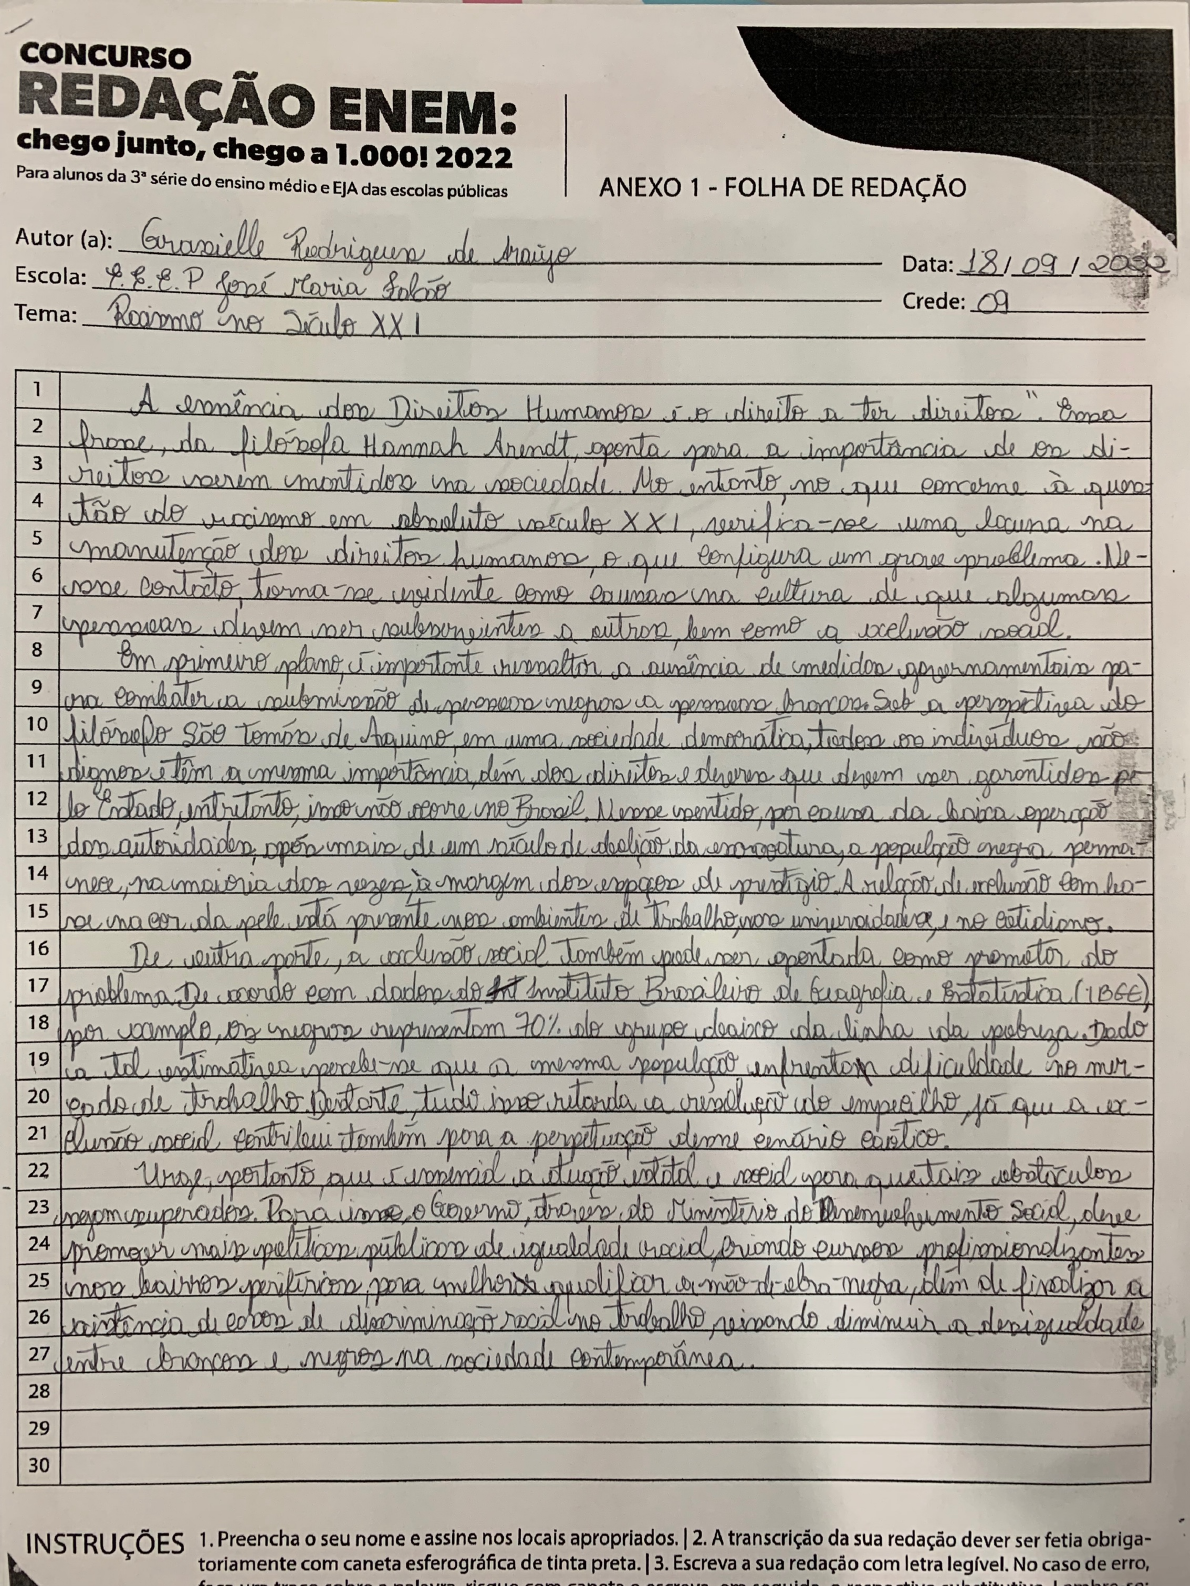 CONCURSO
REDAÇÃO ENEM:
chego junto, chego a 1.000! 2022
Para alunos da 3ª série do ensino médio e EJA das escolas públicas
ANEXO 1 - FOLHA DE REDAÇÃO
Autor (a): Grasielle Rodrigues de Araújo
Data: 18/09/2022
Escola: E.E.E.P José Maria Falcão
Crede: 09
Tema: Racismo no Século XXI
1 A essência dos Direitos Humanos é o direito a ter direitos". Essa
2 frase, da filósofa Hannah Arendt, aponta para a importância de os di-
3 reitos serem mantidos na sociedade. No entanto, no que concerne à ques-
4 tão do racismo em absoluto século XXI, verifica-se uma lacuna na
5 manutenção dos direitos humanos, o que configura um grave problema. Ne-
6 sse contexto, torna-se evidente como causas na cultura de que algumas
7 pessoas devem ser subservientes a outras, bem como a exclusão social.
8 Em primeiro plano, é importante ressaltar a ausência de medidas governamentais pa-
9 ra combater a submissão de pessoas negras a pessoas brancas. Sob a perspectiva do
10 filósofo São Tomás de Aquino, em uma sociedade democrática, todos os indivíduos são
11 dignos e têm a mesma importância, além dos direitos e deveres que devem ser garantidos pe
12 lo Estado, entretanto, isso não ocorre no Brasil. Nesse sentido, por causa da baixa operação
13 das autoridades, após mais de um século de abolição da escravatura, a população negra perma-
14 nece, na maioria das vezes, à margem dos espaços de prestígio. A relação de exclusão com ba-
15 se na cor da pele está presente nos ambientes de trabalho, nas universidades, e no cotidiano.
16 De outra parte, a exclusão social também pode ser apontada como promotor do
17 problema. De acordo com dados do Instituto Brasileiro de Geografia e Estatística (IBGE),
18 por exemplo, os negros representam 70% do grupo abaixo da linha da pobreza. Dado
19 a tal estimativa percebe-se que a mesma população enfrenta dificuldade no mer-
20 cado de trabalho. Destarte, tudo isso retarda a resolução do empecilho, já que a ex-
21 clusão social contribui também para a perpetuação desse cenário caótico.
22 Urge, portanto, que é essencial a atuação estatal e social para que tais obstáculos
23 sejam superados. Para isso, o Governo, através do Ministério do Desenvolvimento Social, deve
24 promover mais políticas públicas de igualdade racial, criando cursos profissionalizantes
25 nos bairros periféricos, para melhor qualificar a mão-de-obra negra, além de fiscalizar a
26 existência de casos de discriminação racial no trabalho, visando diminuir a desigualdade
27 entre brancos e negros na sociedade contemporânea.
28
29
30
INSTRUÇÕES 1. Preencha o seu nome e assine nos locais apropriados. | 2. A transcrição da sua redação dever ser fetia obriga-
toriamente com caneta esferográfica de tinta preta. | 3. Escreva a sua redação com letra legível. No caso de erro,